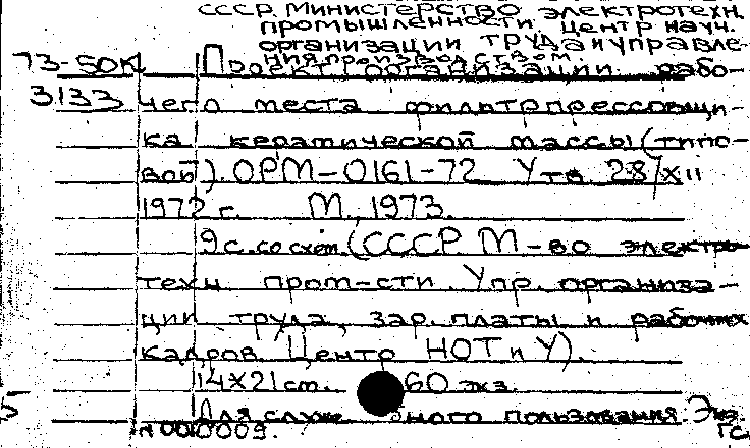 СССР. Министерство электротехн.
промышленности Центр науч.
организации труда и управле-
ния производством.
73-50к Проект организации рабо-
3133 чего места фильтрпрессовщи-
ка керамической массы (типо-
вой). ОРМ-0161-72 Утв 28/XII
1972 г. М., 1973.
9 с. со схем. (СССР М-во электро-
техн. пром-сти. Упр. организа-
ции труда, зар. платы и рабочих
кадров. Центр НОТ и У).
14×21 см. 60 экз.
Для служебного пользования Экз.
N 000009. ГС